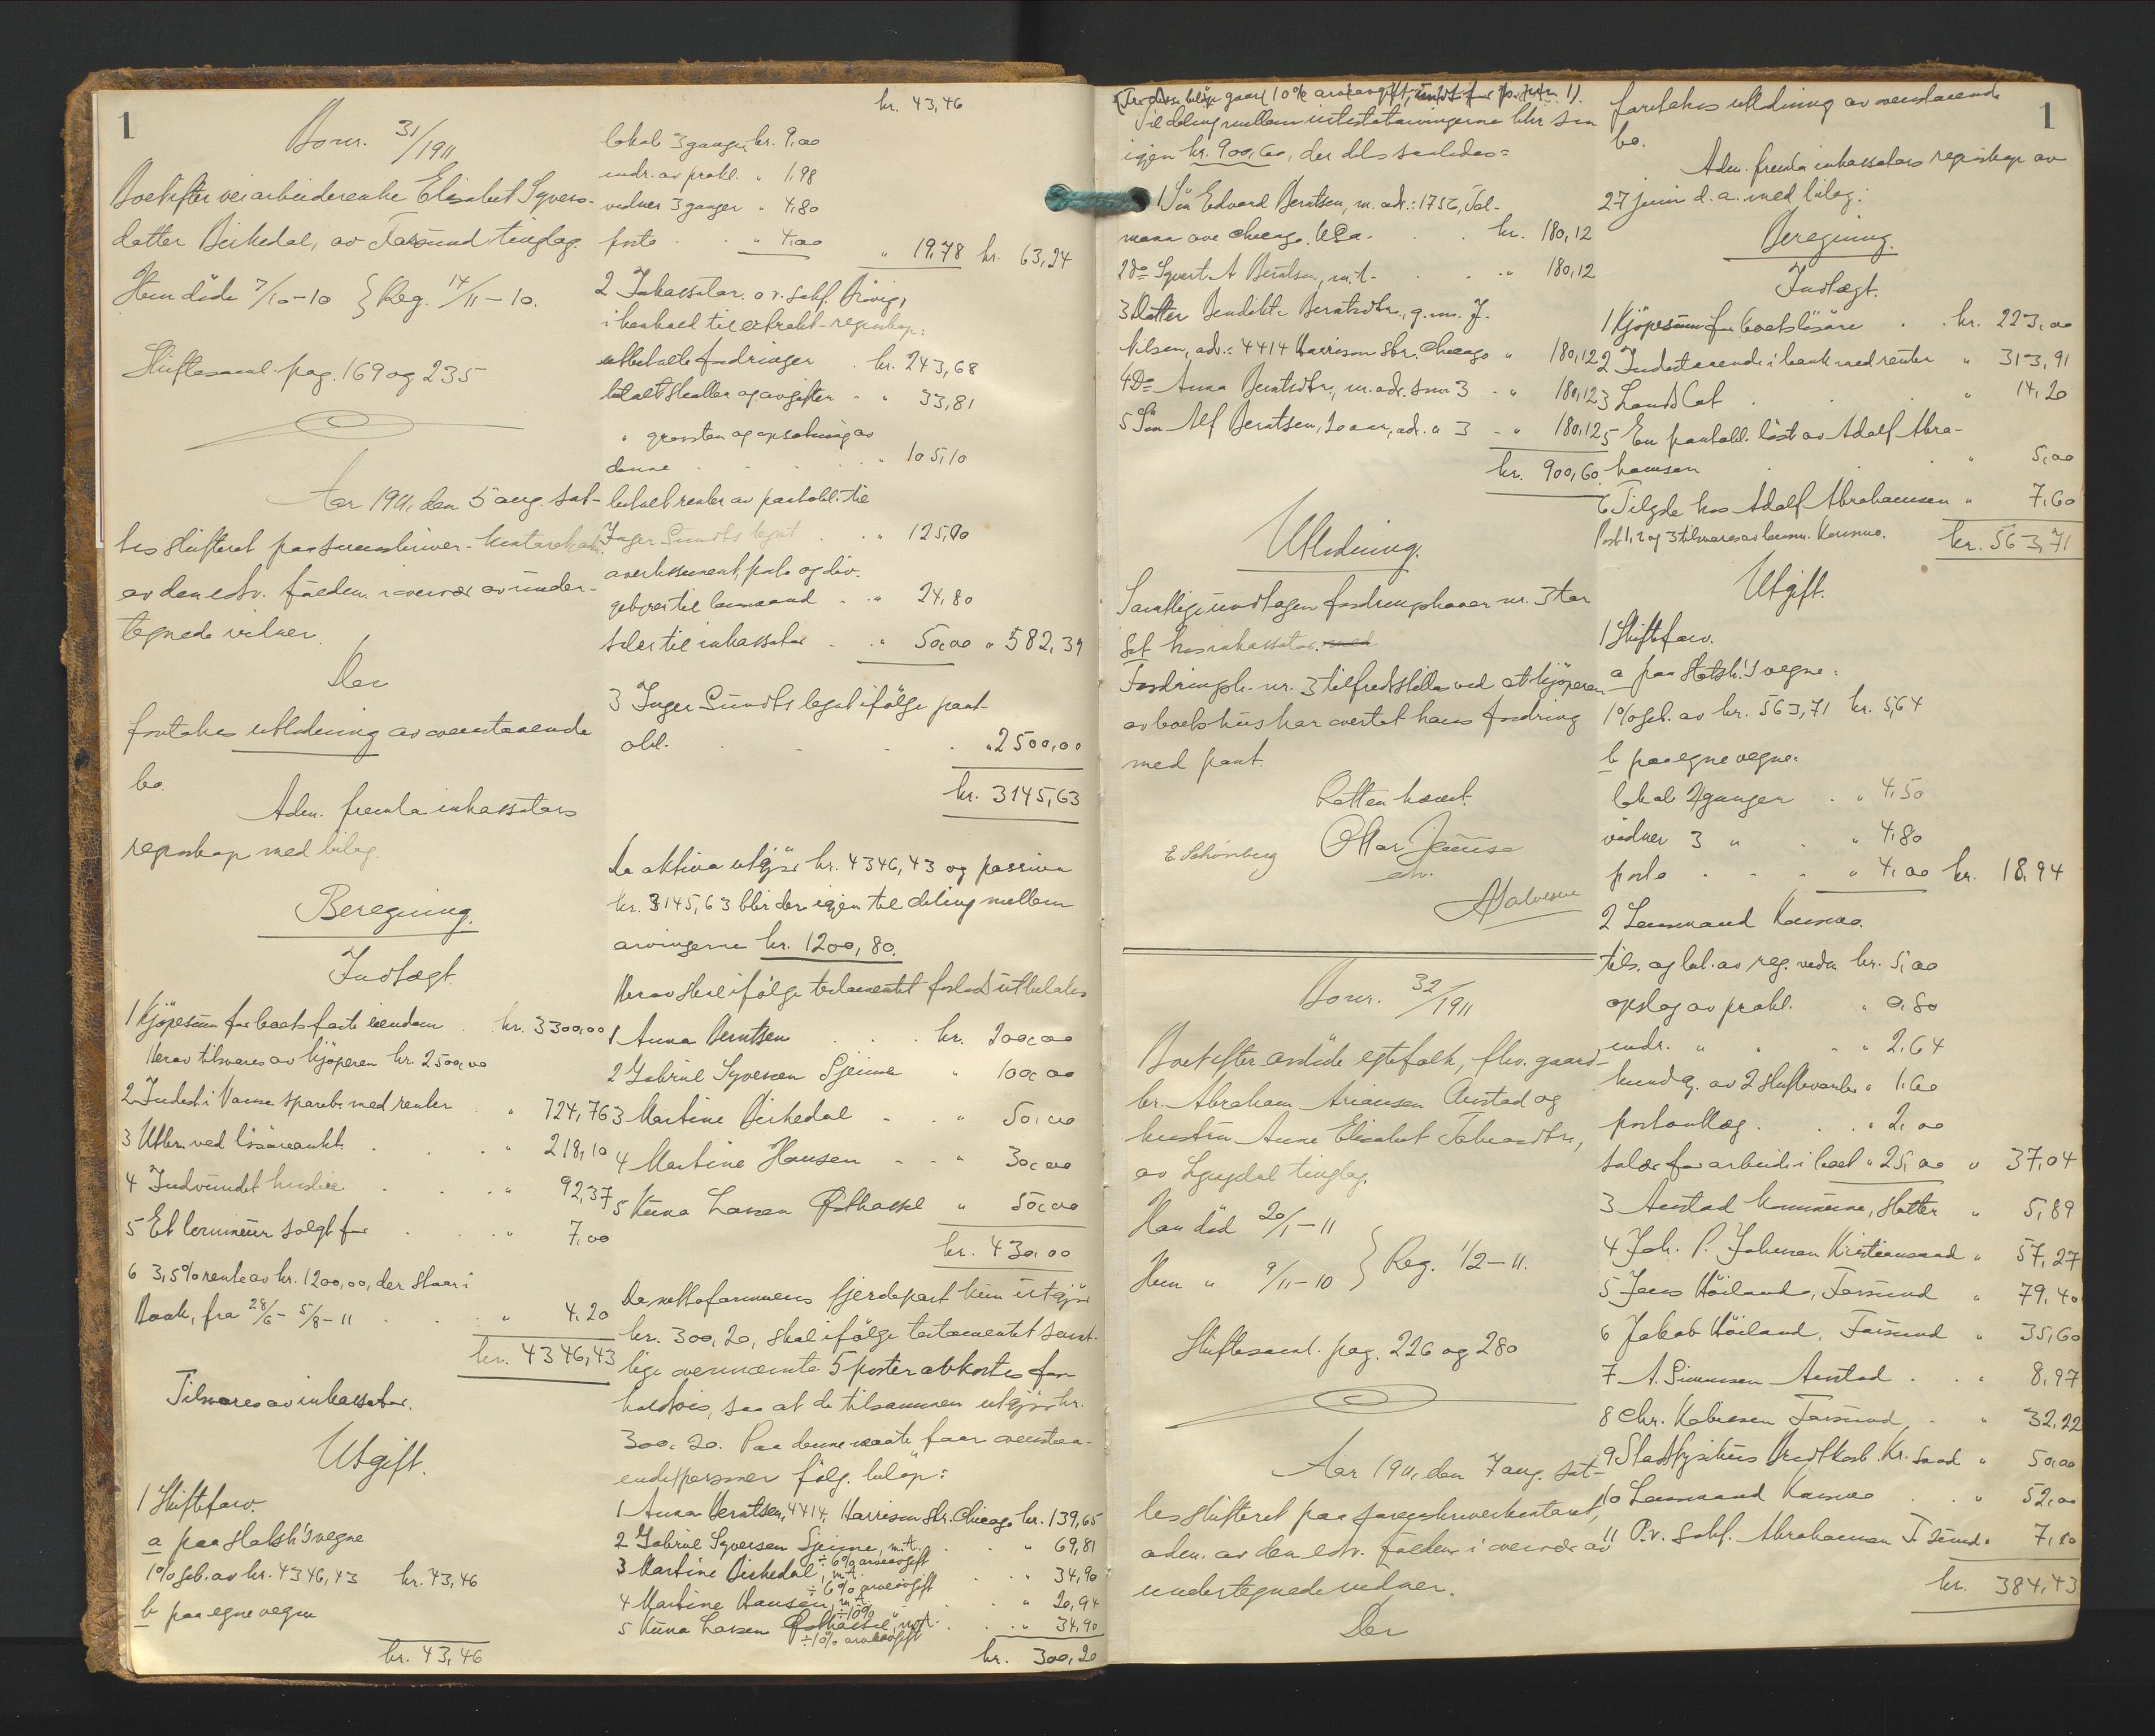 1
Bonr. 31/1911
Boet efter veiarbeiderenke Elisabet Syvers-
datter Birkedal, av Farsund tinglag.
Hun døde 7/10-10 } Reg. 14/11-10.
Skiftesaml. pag. 169 og 235
Aar 1911, den 5 aug. sat-
tes skifteret paa sorenskriver-kontoret adm.
av den edsv. fuldm. i overvær av under-
tegnede vidner.
Der
foretokes utlodning av ovenstaaende
bo.
Adm. fremla inkassators
regnskap med bilag.
Beregning.
Indtægt.
1 Kjøpesum for boets faste eiendom . kr. 3300,00
Herav tilsvares av kjøperen kr. 2500,00
2 Indest. i Vanse spareb. med renter . " 724,76
3 Utbr. ved løsøreaukt. . . . " 218,10
4 Indvundet husleie . . . " 92,37
5 Et kommune solgt for . . . " 7,00
6 3,5% rente av kr. 1200,00, der staar i
Bank, fra 28/6 - 5/8-11 . . . " 4,20
kr. 4346,43
Tilsvares av inkassator.
Utgift.
1 Skiftefarv.
a paa Statsk's vegne
1% geb. av kr. 4346,43 kr. 43,46
b paa egne vegne
kr. 43,46
kr. 43,46
lokale 3 ganger kr. 9,00
indr. av prokl. " 1,98
vidner 3 ganger " 4,80
porto . . " 4,00
" 19,78 kr. 63,24
2 Inkassator o.r.sakf.
i henhold til extrakt-regnskap:
utbetalte fordringer . kr. 243,68
betalt skatter og avgifter - " 33,81
" gravsten og opsætning av
denne . . . . " 105,10
betalt renter av pantobl. til
Inger Sundts legat . . " 125,00
avertissement, porto og div.
gebyrer til lensmand . " 24,80
salær til inkassator . " 50,00 " 582,39
3 Inger Sundts legat ifølge pant-
obl. . . . . " 2500,00
kr. 3145,63
Da aktiva utgjør kr. 4346,43 og passiva
kr. 3145,63 blir der igjen til deling mellem
arvingerne kr. 1200,80.
Herav skal ifølge testamentet forlods utbetales
1 Anna Berntsen . . . kr. 200,00
2 Gabriel Syversen Sjeime " 100,00
3 Martine Birkedal . . " 50,00
4 Martine Hansen - - " 30,00
5 Kuna Larsen Østhassel " 50,00
kr. 430,00
Da nettoformuens fjerdepart kun utgjør
kr. 300,20, skal ifølge testamentet samt-
lige ovennævnte 5 poster avkortes for-
holdsvis, saa at de tilsammen utgjør kr.
300,20. Paa denne maate faar ovenstaa-
ende personer følg. beløp:
1 Anna Berntsen, 4414, Harrison Str. Chicago kr. 139,65
2 Gabriel Syversen Sjeime, m.t. . " 69,81
÷ 6% arveavgift
3 Martine Birkedal, m.t. . . " 34,90
÷ 6% arveavgift
4 Martine Hansen, m.t. . . " 20,94
÷ 10% "
5 Kuna Larsen Østhassel, m.t. . . " 34,90
÷ 10% arveavgift
kr. 300,20
(Fra disse beløp gaar 10% arveavgift, undt. for p. 1).
Til deling mellem intestatarvingerne blir saa
igjen kr. 900,60, der deles saaledes:
1 Søn Edvard Berntsen, m. adr.: 1756, Tal-
mana ave Chicago. U.S.a. . . kr. 180,12
2 Do Syvert A Berntsen, m.t. . . " 180,12
3 Datter Bendikte Berntsdtr., g.m. J.
Nilsen, adr.: 4414 Harrison Str. Chicago " 180,12
4 Do Anna Berntsdtr., m. adr. som 3 - " 180,12
5 Søn Alf Berntsen, 20 aar, adr. " 3 - " 180,12
kr. 900,60
Utlodning.
Samtlige undtagen fordringshaver nr. 3 tar
sit hos inkassator. med
Fordringsh. nr. 3 tilfredstilles ved at kjøperen
av boets hus har overtat hans fordring
med pant.
Retten hævet.
E. Schönberg
edv.
Bonr. 32/1911
Boet efter avdøde egtefolk, fhv. gaard-
br. Abraham Ariansen Austad og
hustru Anne Elisabet Tobiasdtr.,
av Lyngdal tinglag.
Han død 20/1-11
Hun " 9/11-10 } Reg. 1/2-11.
Skiftesaml. pag. 226 og 280
Aar 1911, den 7 aug. sat-
tes skifteret paa sorenskriverkontoret,
adm. av den edsv. fuldm. i overvær av
undertegnede vidner.
Der
1
foretokes utlodning av ovenstaaende
bo.
Adm. fremla inkassators regnskap av
27 juni d.a. med bilag:
Beregning.
Indtægt.
1 Kjøpesum for boets løsøre . . kr. 223,00
2 Indestaaende i bank med renter " 313,91
3 Landslot . . . " 14,20
5 En pantobl. løst av Adolf Abra-
hamsen . . " 5,00
6 Tilgode hos Adolf Abrahamsen " 7,60
Post 1, 2 og 3 tilsvares av lensm. Kaurmo. kr. 563,71
Utgift.
1 Skiftefarv.
a paa Statsk.'s vegne:
1% geb. av kr. 563,71 kr. 5,64
b paa egne vegne:
lokale 2 ganger . " 4,50
vidner 3 " . " 4,80
porto - - - " 4,00 kr. 18,94
2 Lensmand
tils. og bet. av reg. vidn. kr. 5,00
opslag av prokl. " 0,80
indr. " " - " 2,64
kundg. av 2 skiftevarsler " 1,60
portoutlæg . . . " 2,00
salær for arbeide i boet " 25,00 " 37,04
3 Austad kommune, skatter " 5,89
4 Joh. P. Johnsen Kristiansand " 57,27
5 Jens Høiland, Farsund " 79,40
6 Jakob Høiland, Farsund " 35,60
7 A. Simonsen Austad . . " 8,97
8 Chr. Kobresen Farsund . " 32,22
9 Stadsfysikus Kr. sand " 50,00
10 Lensmand . . " 52,00
11 O.r. sakf. Abrahamsen F. sund. 7,10
kr. 384,43